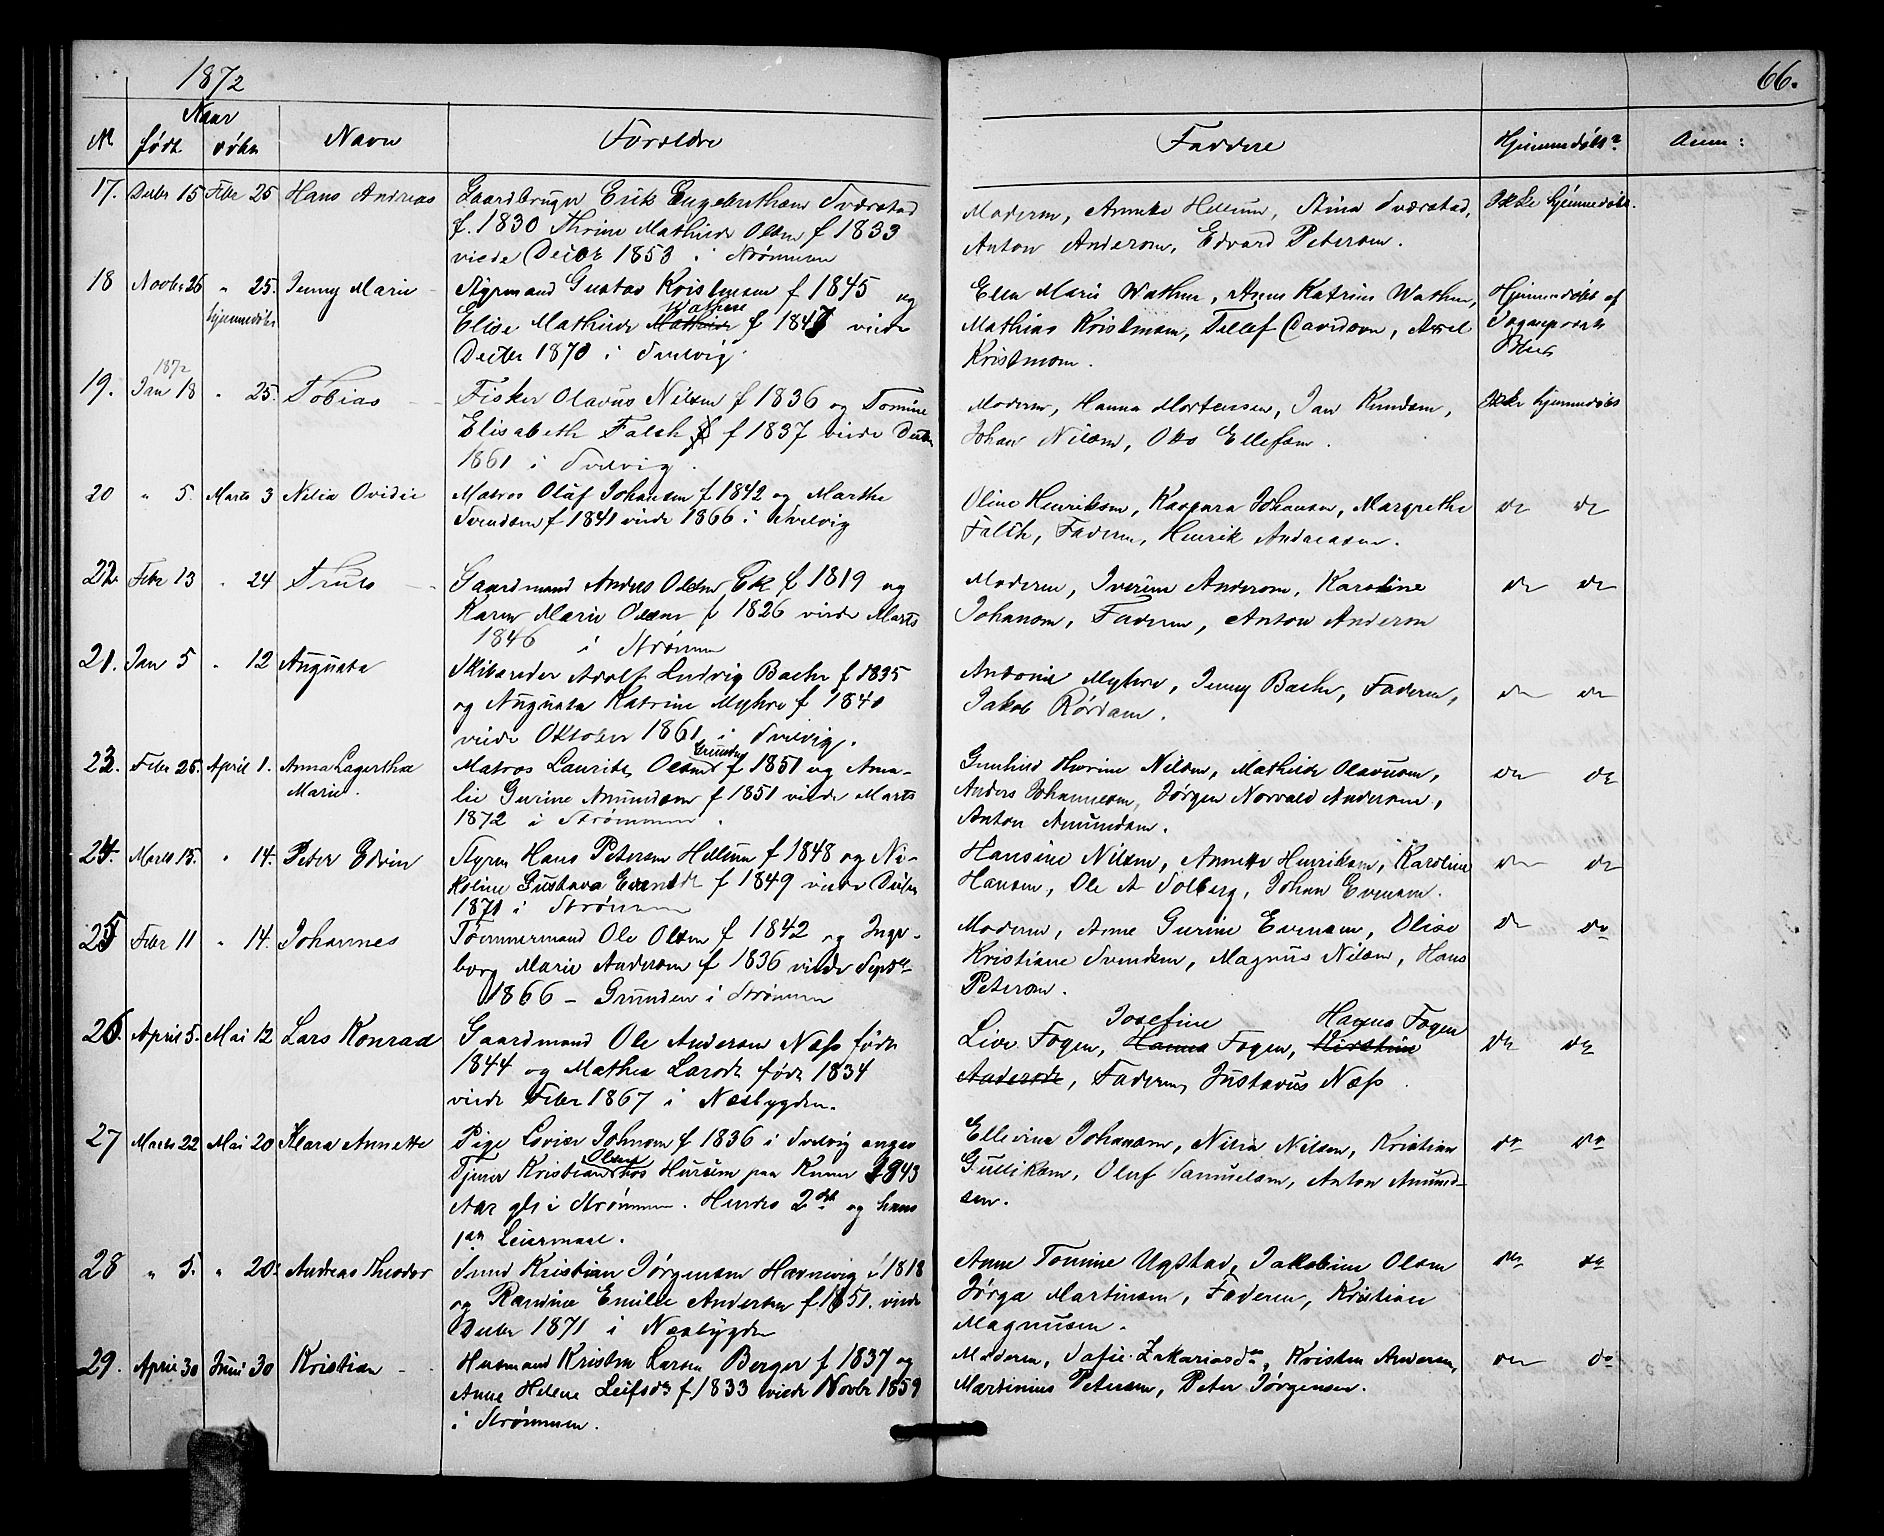 1872
66.
Naar
No født døbt Navn Forældre Faddere Hjemmedøbt? Anm:
17. Decbr 15 Febr 25 Hans Andreas Gaardbruger Erik Engebrethsen Sværstad
f. 1830 Thrine Mathilde Olsen f 1833
viede Decbr 1853 i Strømmen
Moderen, Anneke Hellum, Stina Sværstad,
Anton Andersen, Edvard Petersen.
Ikke hjemmedøbt.
18 Novbr 26 " 25. Jenny Marie
hjemmedøbt
Styrmand Gustav Kristensen f 1845 og
Elise Mathilde Mathilde Wathne f 1847 viede
Decbr 1870 i Svelvig.
Ella Marie Wathne, Anne Katrine Wathne,
Mathias Kristensen, Tellef Davidsen, Axel
Kristensen.
Hjemmedøbt af
Sognepræst
19. 1872 Jan 18 " 25. Tobias
Fisker Olavus Nilsen f 1836 og Tomine
Elisabeth Falch f 1837 viede Decbr
1861 i Svelvig.
Moderen, Hanna Mortensen, Jan Knudsen,
Johan Nilsen, Otto Ellefsen.
Ikke hjemmedøbt
20 " 5. Marts 3 Nilia Ovidie
Matros Oluf Johansen f. 1842 og Marthe
Svendsen f 1841 viede 1866 i Svelvig
Oline Henriksen, Kaspara Johansen, Margrethe
Falch, Faderen, Henrik Andreasen.
do do
22. Febr 13 " 24 Truls
Gaardmand Anders Olsen Ek f 1819 og
Karen Marie Olsen f 1826 viede Marts
1846 i Strømmen
Moderen, Iverine Andersen, Karoline
Johansen, Faderen, Anton Andersen
do do
21. Jan 5 " 12 Augusta
Skibsreder Adolf Ludvig Bache f 1835
og Augusta Katrine Myhre f 1840
viede Oktober 1861 i Svelvig.
Antonie Myhre, Jenny Bache, Faderen,
Jakob Rørdam.
do do
23. Febr 25. April 1. Anna Lagertha
Marie.
Matros Laurits Olsen Grunden f 1851 og Ama-
lie Gurine Amundsen f 1851 viede Marts
1872 i Strømmen.
Gunhild Hverine Nilsen, Mathilde Olavusen,
Anders Johannesen, Jørgen Norvald Andersen,
Anton Amundsen.
do do
24. Marts 15. " 14. Peter Edvin
Styrm Hans Petersen Hellum f 1848 og Ni-
koline Gustava Evensdt f 1849 viede Decbr
1870 i Strømmen
Hansine Nilsen, Annette Henriksen, Karoline
Hansen, Ole A Solberg, Johan Evensen.
do do
25 Febr 11 " 14. Johannes
Tømmermand Ole Olsen f 1842 og Inge-
borg Marie Andersen f 1836 viede Septbr
1866 - Grunden i Strømmen
Moderen, Anne Gurine Evensen, Olise
Kristiane Svendsen, Magnus Nilsen, Hans
Petersen.
do do
26. April 5. Mai 12 Lars Konrad
Gaardmand Ole Andersen Næss født
1844 og Mathea Larsdt født 1834
viede Febr 1867 i Næsbygden.
Live Fogen, Hanna Josefine Fogen, Kirstine Hanna Fogen
Andersdt, Faderen, Gustavus Næss.
do do
27 Marts 22 Mai 20 Klara Annette
Pige Lovise Johnsen f 1836 i Svelvig angav
Tjener Kristian Olsen hos Hursum paa Knem 2843
Aar gl. i Strømmen. Hendes 2det og hans
1ste Leiermaal.
Ellevina Johansen, Nilia Nilsen, Kristian
Gulliksen, Oluf Samuelsen, Anton Amund-
sen.
do do
28 " 5. " 20. Andreas Theodor
Smed Kristian Jørgensen Havnevig f 1818
og Randine Emilie Andersen f 1851. viede
Decbr 1871 i Næsbygden
Anne Tomine Ugstad, Jakobine Olsen
Jørga Martinsen, Faderen, Kristian
Magnusen.
do do
29. April 30 Juni 30 Kristian
Husmand Kristen Larsen Berger f 1837 og
Anne Helene Leifsdt f 1833 viede Novbr 1859
i Strømmen.
Moderen, Sofie Zakariasdn, Kristen Andersen,
Martinius Petersen, Peter Jørgensen.
do do